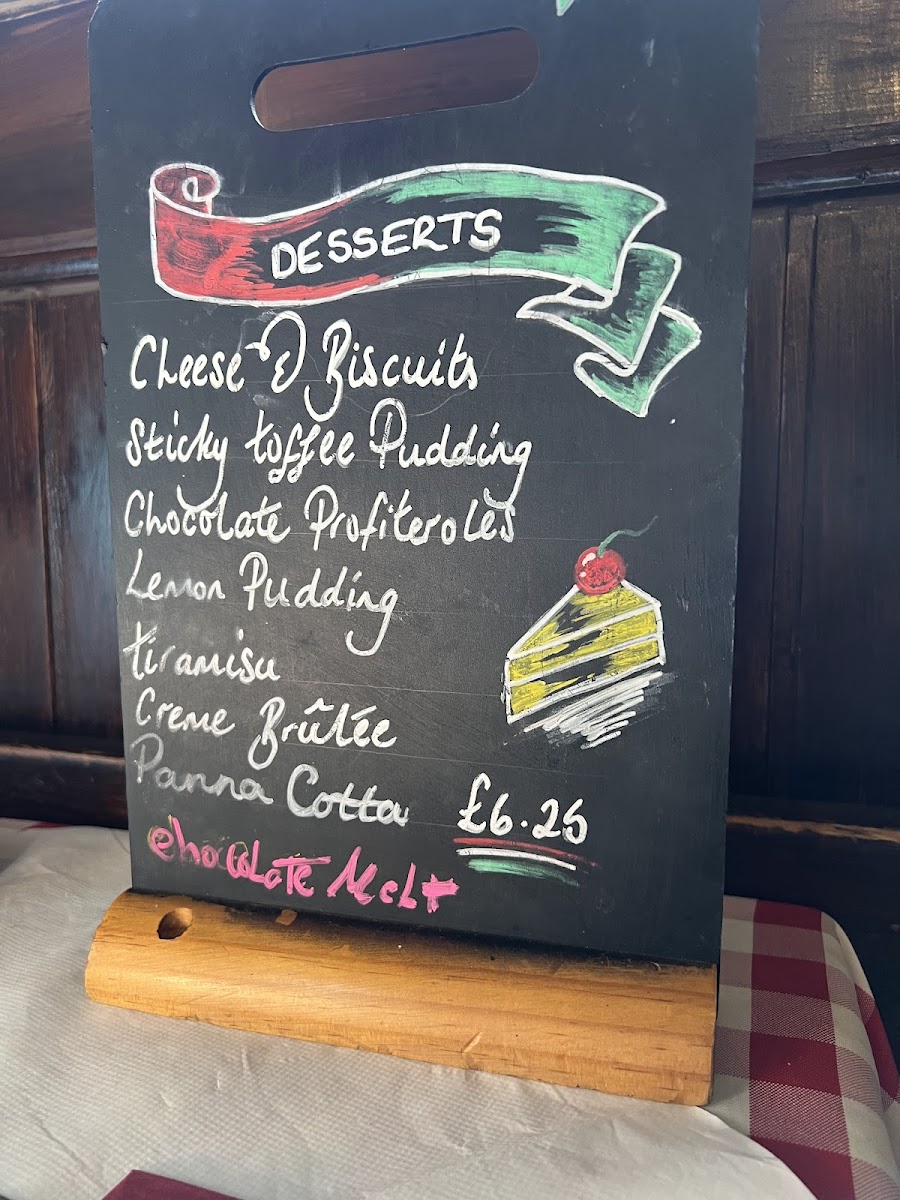 DESSERTS
Cheese & Biscuits
Sticky toffee Pudding
Chocolate Profiteroles
Lemon Pudding
tiramisu
Creme Brûlée
Panna Cotta
£6.25
chocolate Melt